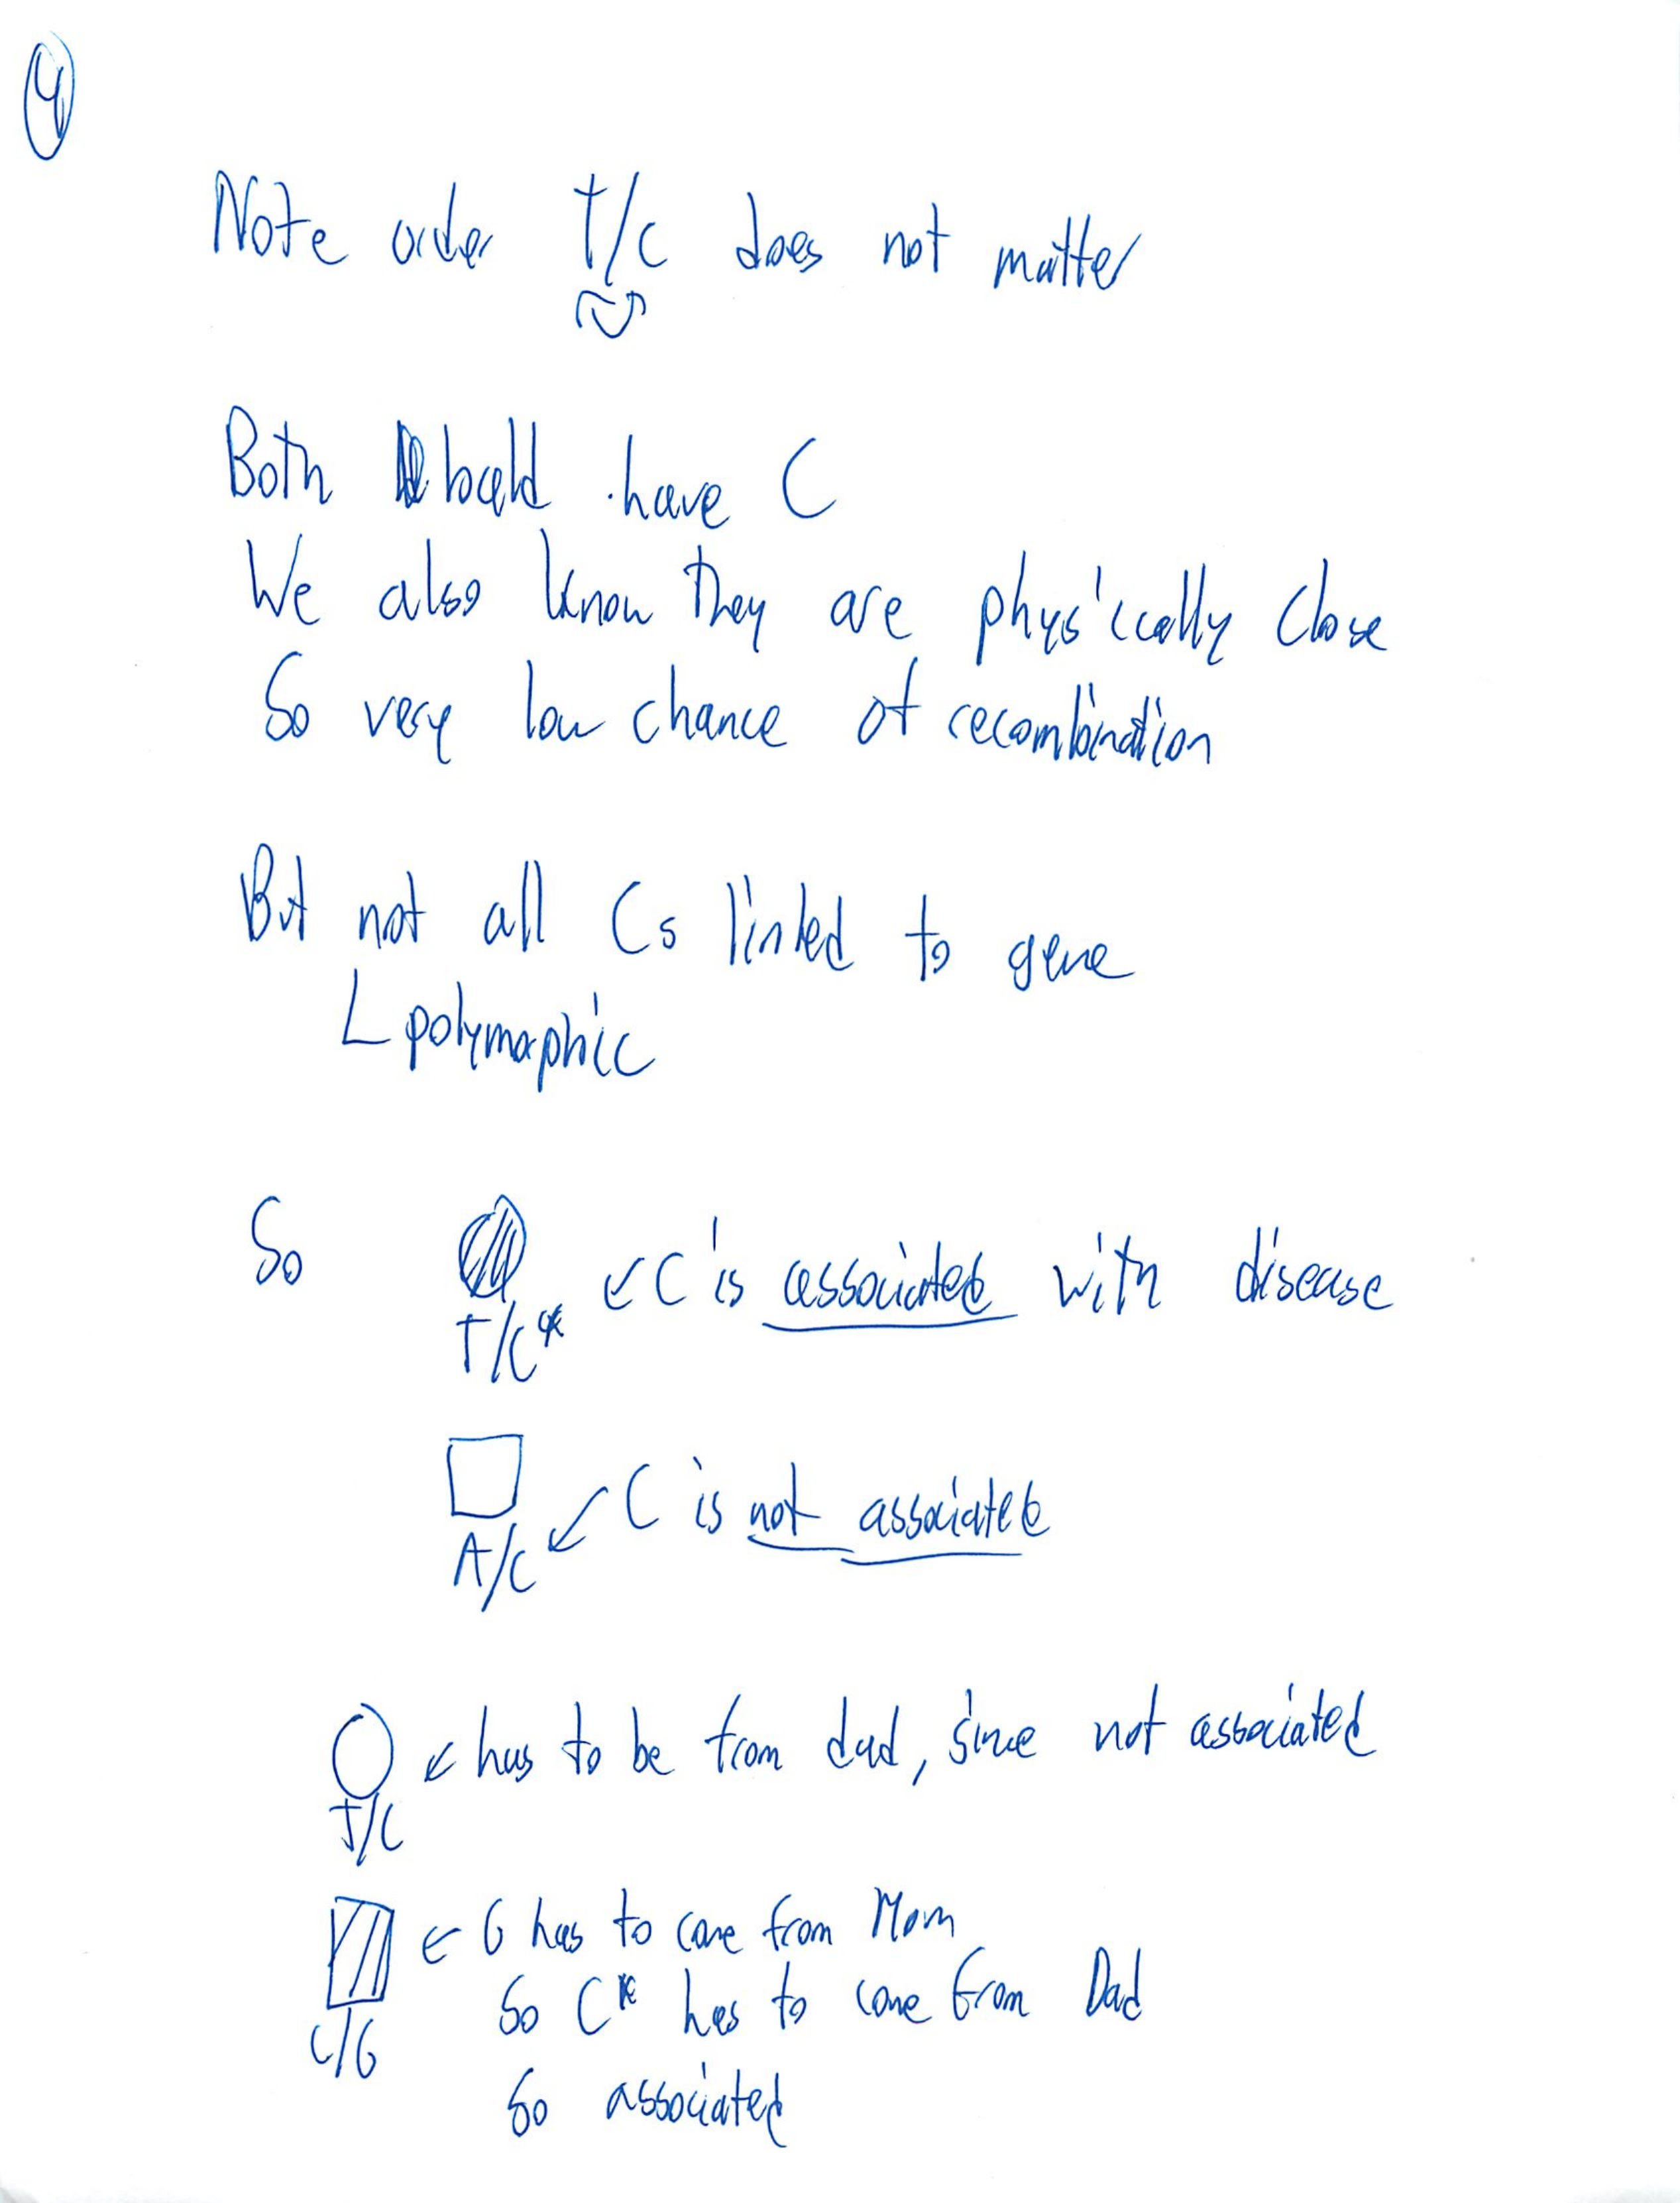 4
Note order T/C does not matter
Both could have C
We also know they are physically close
So very low chance of recombination
But not all Cs linked to gene
polymorphic
So C is associated with disease
T/C*
C is not associated
A/C
has to be from dad, since not associated
T/C
G has to come from Mom
So C* has to come from Dad
C/G
So associated